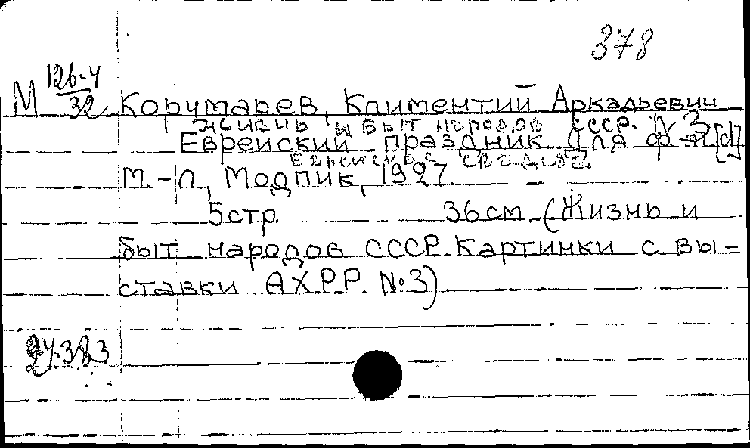 378
М 126-4
32
Корчмарев, Климентий Аркадьевич
Жизнь и быт народов СССР. № 3
Еврейский праздник для ф-п [d]
Еврейская свадьба
М.-Л., Модпик, 1927.
5 стр. 36 см. (Жизнь и
быт народов СССР. Картинки с вы-
ставки АХРР. № 3)